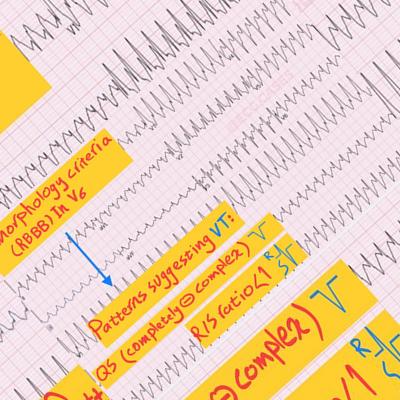 morphology criteria
(RBBB) In V6
Patterns suggesting VT:
QS (completely ⊖ complex)
R/S ratio <1 R/S
⊖ complex)
/1 R/